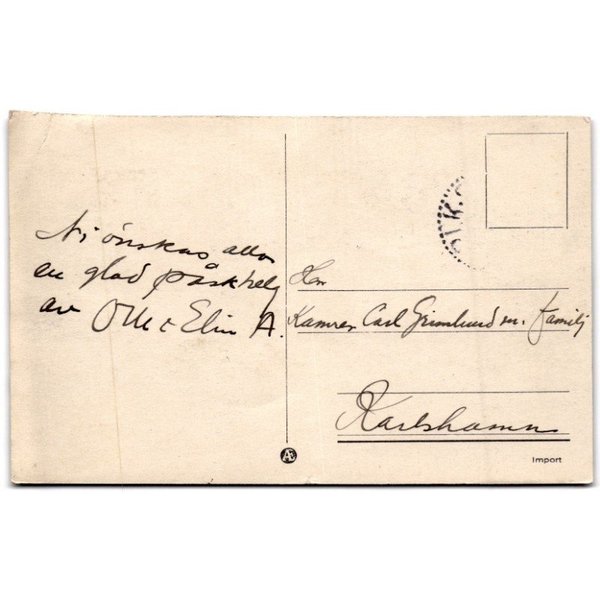 Ni önskas alla
en glad påskhelg
av Olle & Elin A.
Herr
Kamrer Carl Grimlund m. familj
Karlshamn
Import